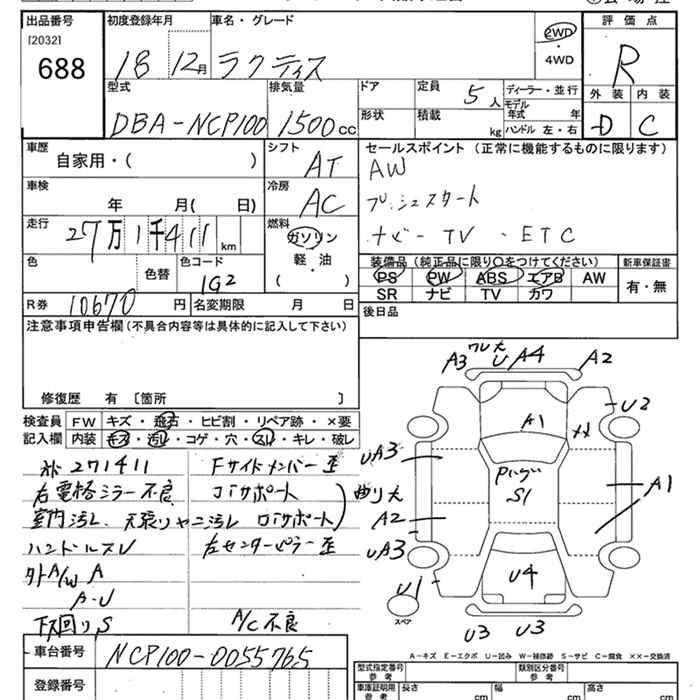 出品番号 初度登録年月 車名・グレード 評価点
[2032] 688 18 12月 ラクティス 2WD・4WD R
型式 排気量 ドア 定員 5人 ディーラー・並行 外装 内装
DBA-NCP100 1500cc 形状 積載 kg モデル年式 年 ハンドル 左・右 D C
車歴 シフト セールスポイント(正常に機能するものに限ります)
自家用・( ) AT AW
車検 冷房 プッシュスタート
年 月( 日) AC ナビーTV・ETC
走行 27万1千411km 燃料 ガソリン 軽・油 ( )
装備品(純正品に限り○をつけてください) 新車保証書
色 色替 色コード 1G2 PS PW ABS エアB AW 有・無
SR ナビ TV カワ
R券 10670円 名変期限 月 日 後日品
注意事項申告欄(不具合内容等は具体的に記入して下さい)
修復歴 有〔箇所 〕
検査員記入欄 FW キズ・飛石・ヒビ割・リペア跡・×要
内装 キズ・汚レ・コゲ・穴・スレ・キレ・破レ
271411 Fサイドメンバー歪
右電格ミラー不良 コアサポート
室内汚レ、天張リヤニ汚レ ロアサポート 曲り大
ハンドルスレ 左センターピラー歪
外A/W A
A・U
下廻りS A/C不良
ワレ大
A3 U A4 A2
A1 U2
UA3 S1 A1
A2
UA3
U1 U4
スペア
U3 U3
A-キズ E-エクボ U-凹み W-補修跡 S-サビ C-腐食 ××-交換済
車台番号 NCP100-0055765
登録番号
型式指定番号 参考 類別区分番号 参考
車庫証明用 参考 長さ cm 幅 cm 高さ cm